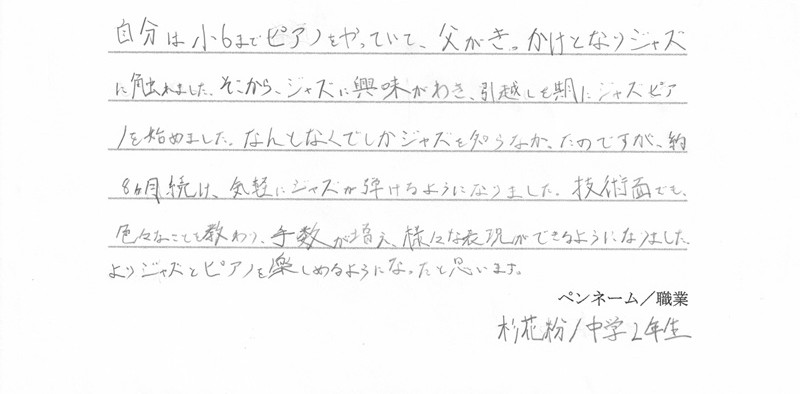 自分は小6までピアノをやっていて、父がきっかけとなりジャズ
に触れました。そこから、ジャズに興味がわき、引越しを期にジャズピア
ノを始めました。なんとなくでしかジャズを知らなかったのですが、約
8ヶ月続け、気軽にジャズが弾けるようになりました。技術面でも、
色々なことを教わり、手数が増え、様々な表現ができるようになりました。
よりジャズとピアノを楽しめるようになったと思います。
ペンネーム／職業
杉花粉/中学2年生